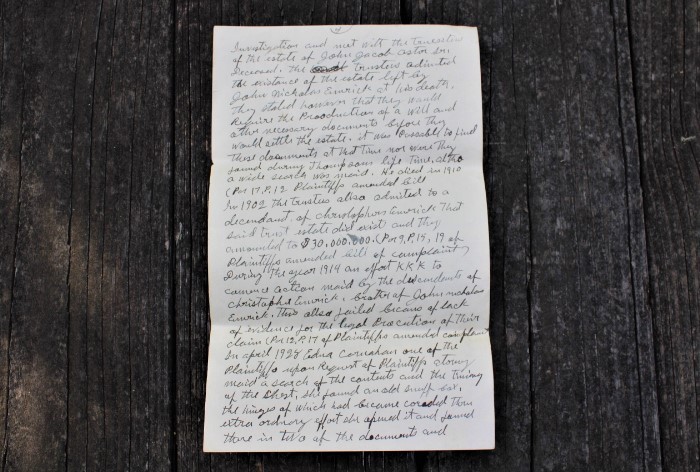 Investigation and met with the trueseles
of the estate of John Jacob Astor Sr.
Deceased. The trustees admited
the existance of the estate left by
John Nicholas Emrick at his death,
they stated however that they would
Require the Prooduction of a Will and
other necessary documents before they
would settle the estate. it was Possable to find
these documents at that time nor were they
found during Thompsons life time, altho
a wide search was maid. He died in 1910
(Par 17, P, 12 Plaintiffs amended bill
In 1902 the trusties also admited to a
decendant of christophor Emrick that
said trust estate did exist and they
amounted to $30,000,000. (Par 9, P, 15, 19 of
Plaintiffs amended bill of complaint)
During the year 1914 an effort KKK to
comence action maid by the decendants of
Christopher Emrick, brother of John nicholas
Emrick. This allso failed becaus of lack
of evidence for the legal Procecution of their
claim (Par 12, P, 17 of Plaintiffs amended complaint
In april 1928 Edna Cornahan one of the
Plaintiffs upon Request of Plaintiffs atorny
maid a search of the contents and the trining
of the Chest, she found an old snuff box,
the hinges of which had became coroded thru
extra ordinary effort she opened it and found
there in two of the documents and